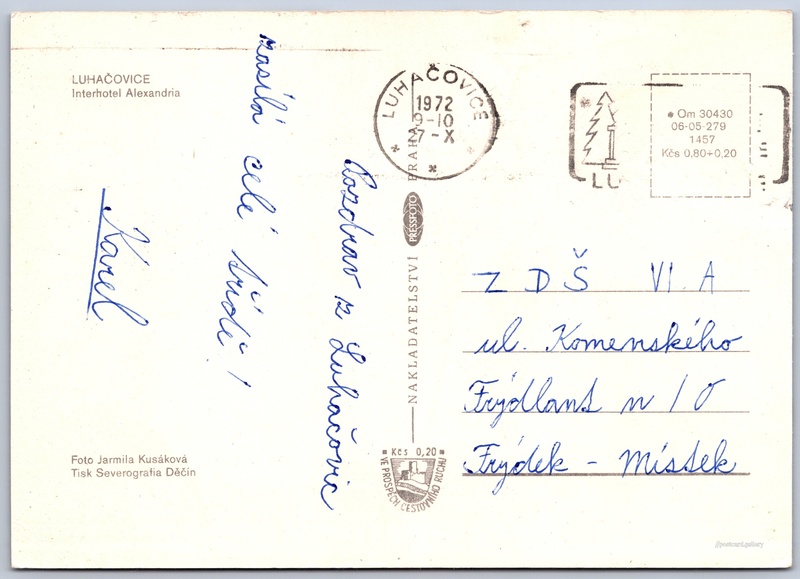 LUHAČOVICE
Interhotel Alexandria
Pozdrav z Luhačovic
zasílá celé třídě!
Karel
Foto Jarmila Kusáková
Tisk Severografia Děčín
LUHAČOVICE
1972
9-10
27-X
NAKLADATELSTVÍ PRESSFOTO PRAHA
Kčs 0,20
VE PROSPĚCH CESTOVNÍHO RUCHU
LU
Om 30430
06-05-279
1457
Kčs 0,80+0,20
Z D Š VI. A
ul. Komenského
Frýdlant n/O
Frýdek - Místek
postcard.gallery